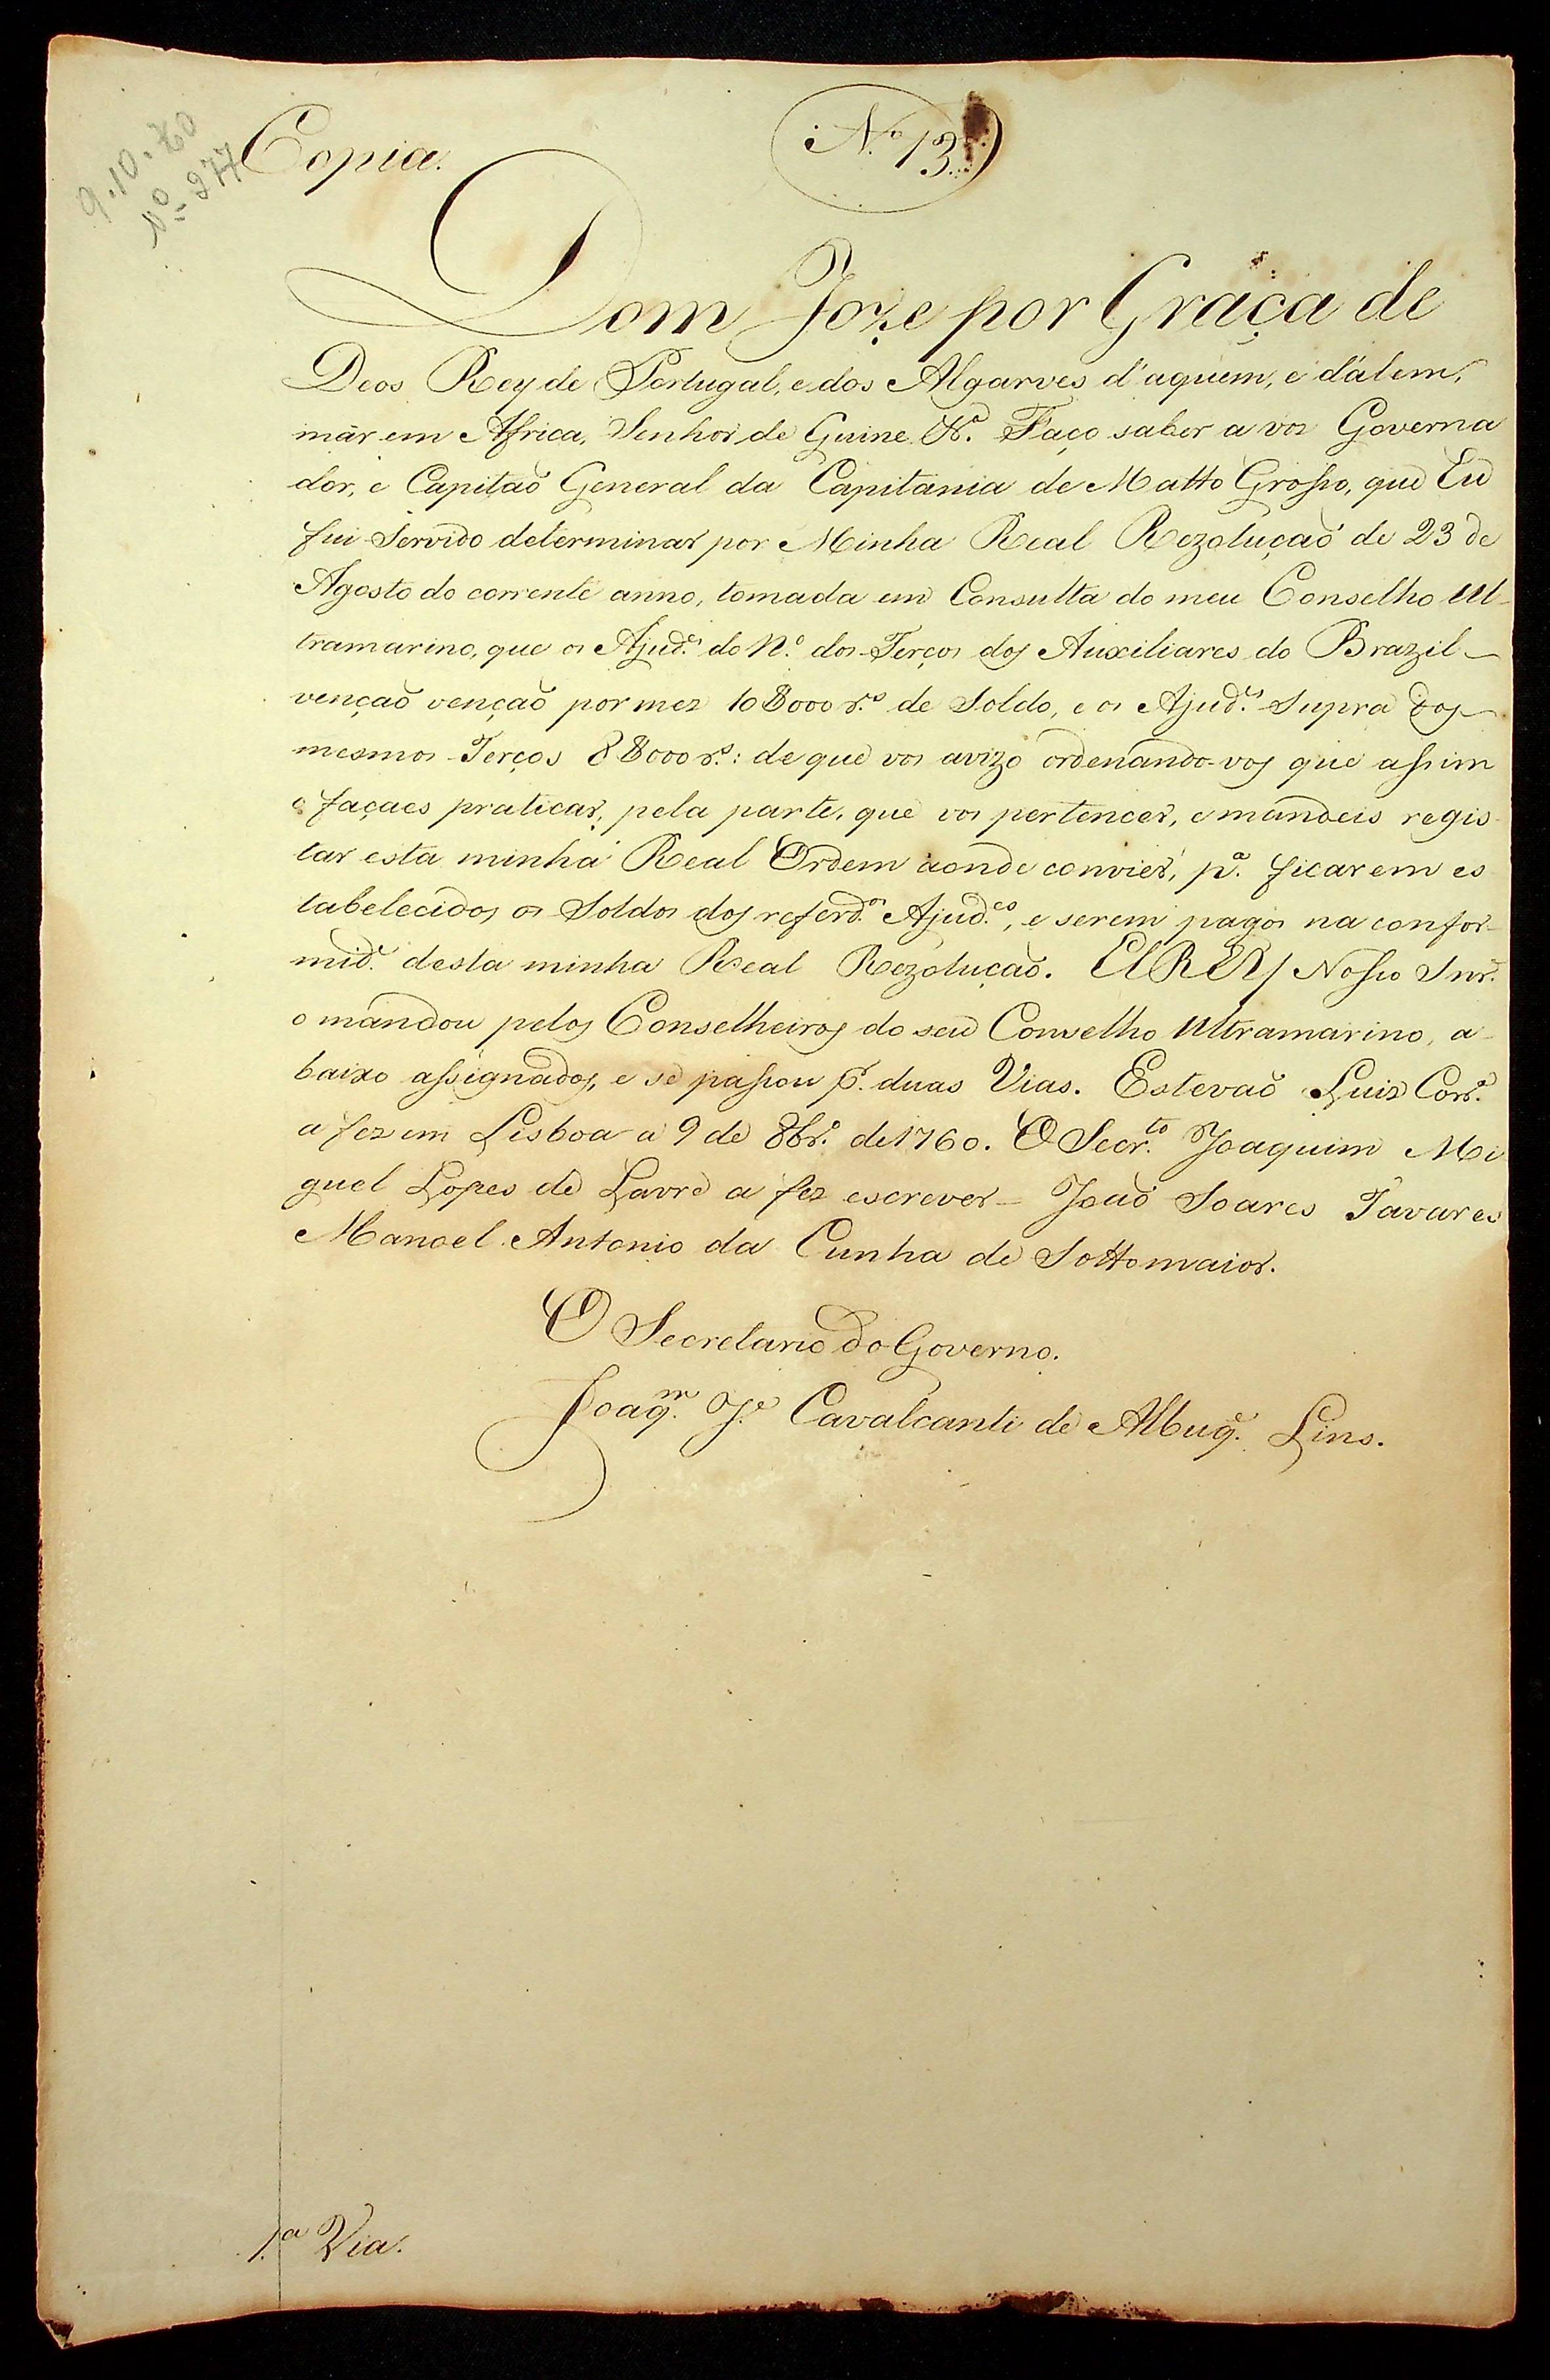 9.10.60
Nº 277
Copia.
N.º 13.
Dom Joze por Graça de
Deos Rey de Portugal, e dos Algarves d'aquem, e d'alem,
mar em Africa, Senhor de Guine &.ª Faço saber a vos Governa
dor, e Capitaõ General da Capitania de Matto Grosso, que Eu
fui Servido determinar por Minha Real Rezoluçaõ de 23 de
Agosto do corrente anno, tomada em Consulta do meu Conselho Ul-
tramarino, que os Ajud.es do N.º dos Terços dos Auxiliares do Brazil
vençaõ vençaõ por mez 10$000 r.s de Soldo, e os Ajud.es Supra dos
mesmos Terços 8$000 r.s: de que vos avizo ordenando-vos que assim
o façaes praticar, pela parte, que vos pertencer, e mandeis regis-
tar esta minha Real Ordem aonde convier, p.ª ficarem es
tabelecidos os Soldos dos referd.os Ajud.es, e serem pagos na confor-
mid.e desta minha Real Rezoluçaõ. ElREy Nosso Snr.
o mandou pelos Conselheiros do seu Conselho Ultramarino, a-
baixo assignados, e se passou p.r duas Vias. Estevaõ Luiz Corr.ª
a fez em Lisboa a 9 de 8br.º de 1760. O Secr.to Joaquim Mi
guel Lopes de Lavre a fez escrever - Joaõ Soares Tavares
Manoel Antonio da Cunha de Sottomaior.
O Secretario do Governo.
Joaq.m J.e Cavalcanti de Albuq.e Lins.
1.ª Via.